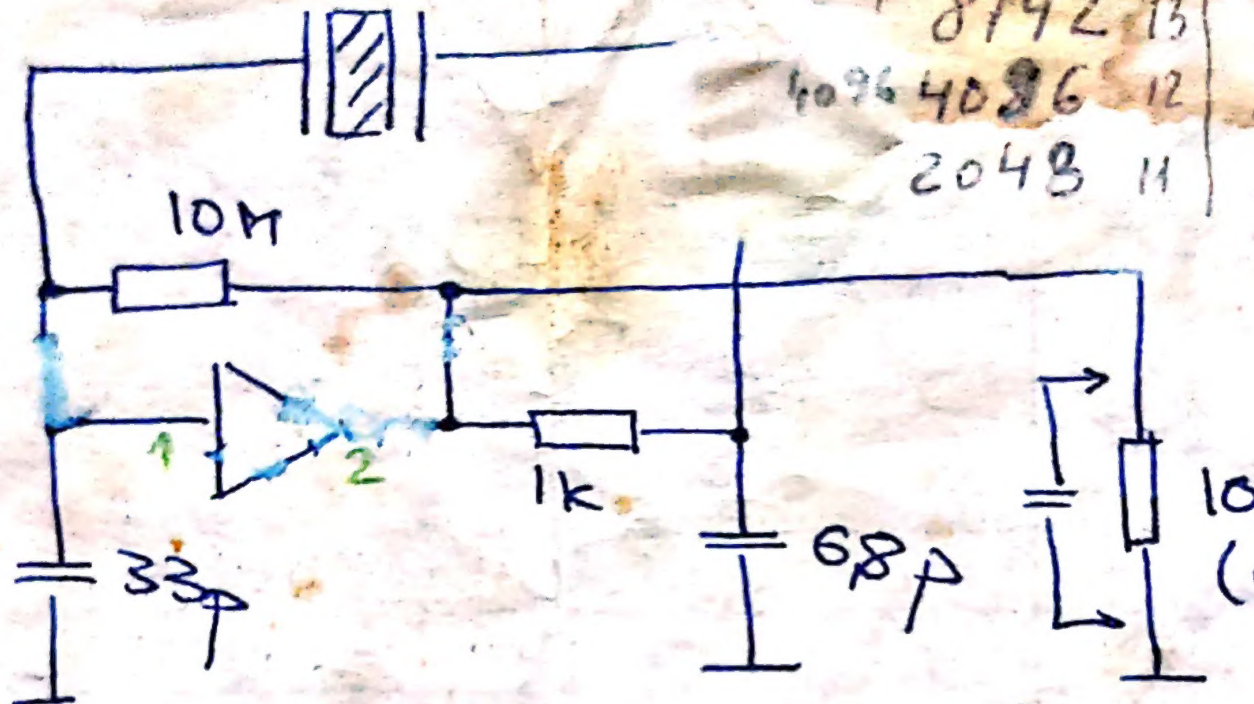 8192 13
4096 4096 12
2048 11
10M
1
2
1k
33p
68p
10
(